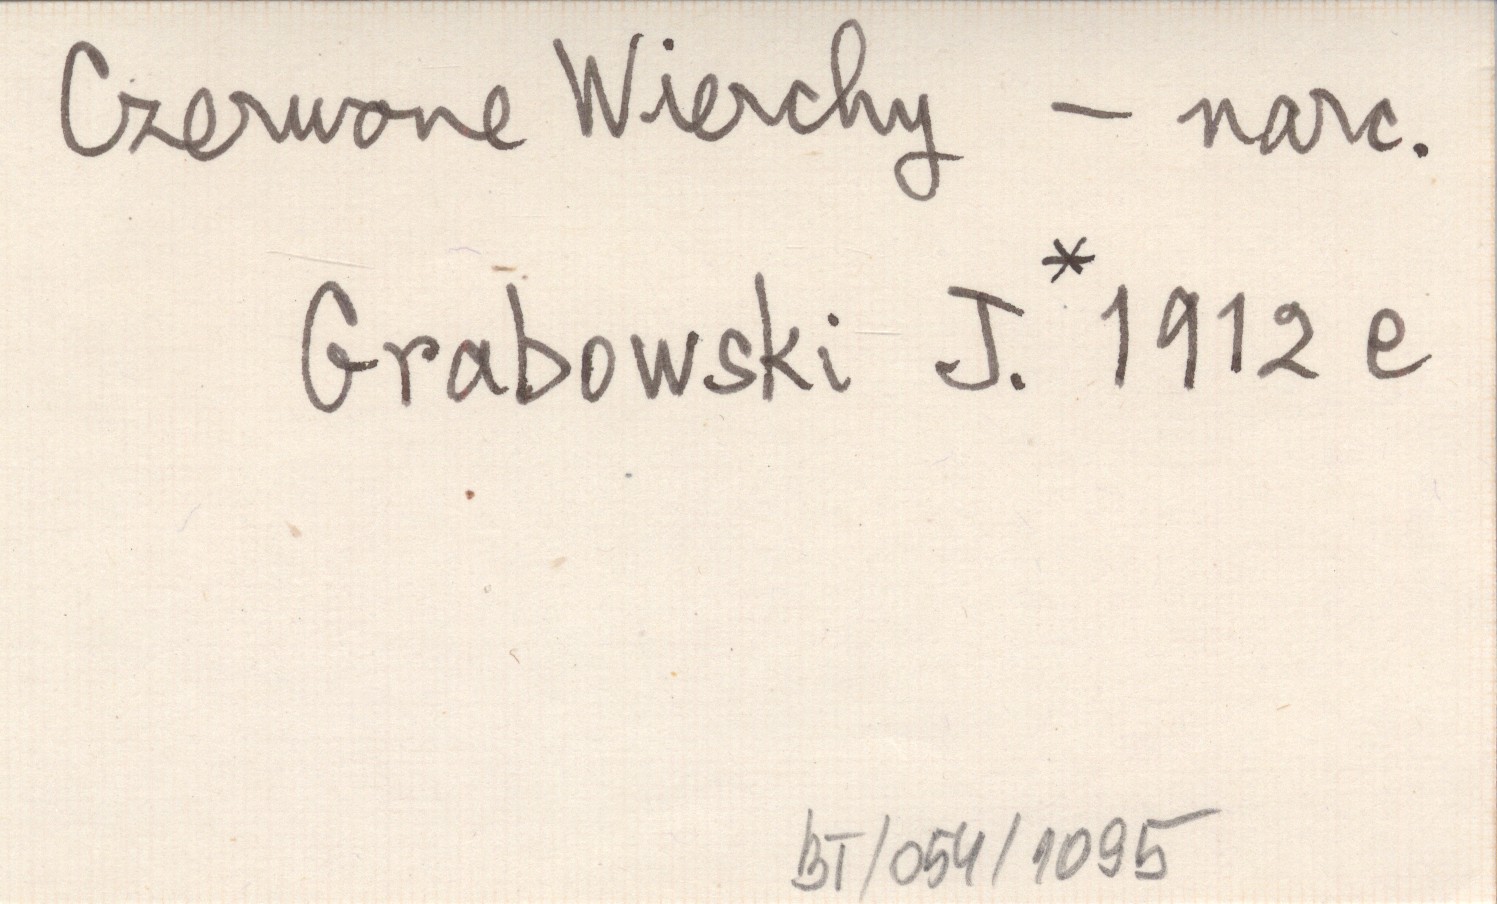 Czerwone Wierchy - narc.
Grabowski J. *1912 e
BT/054/1095